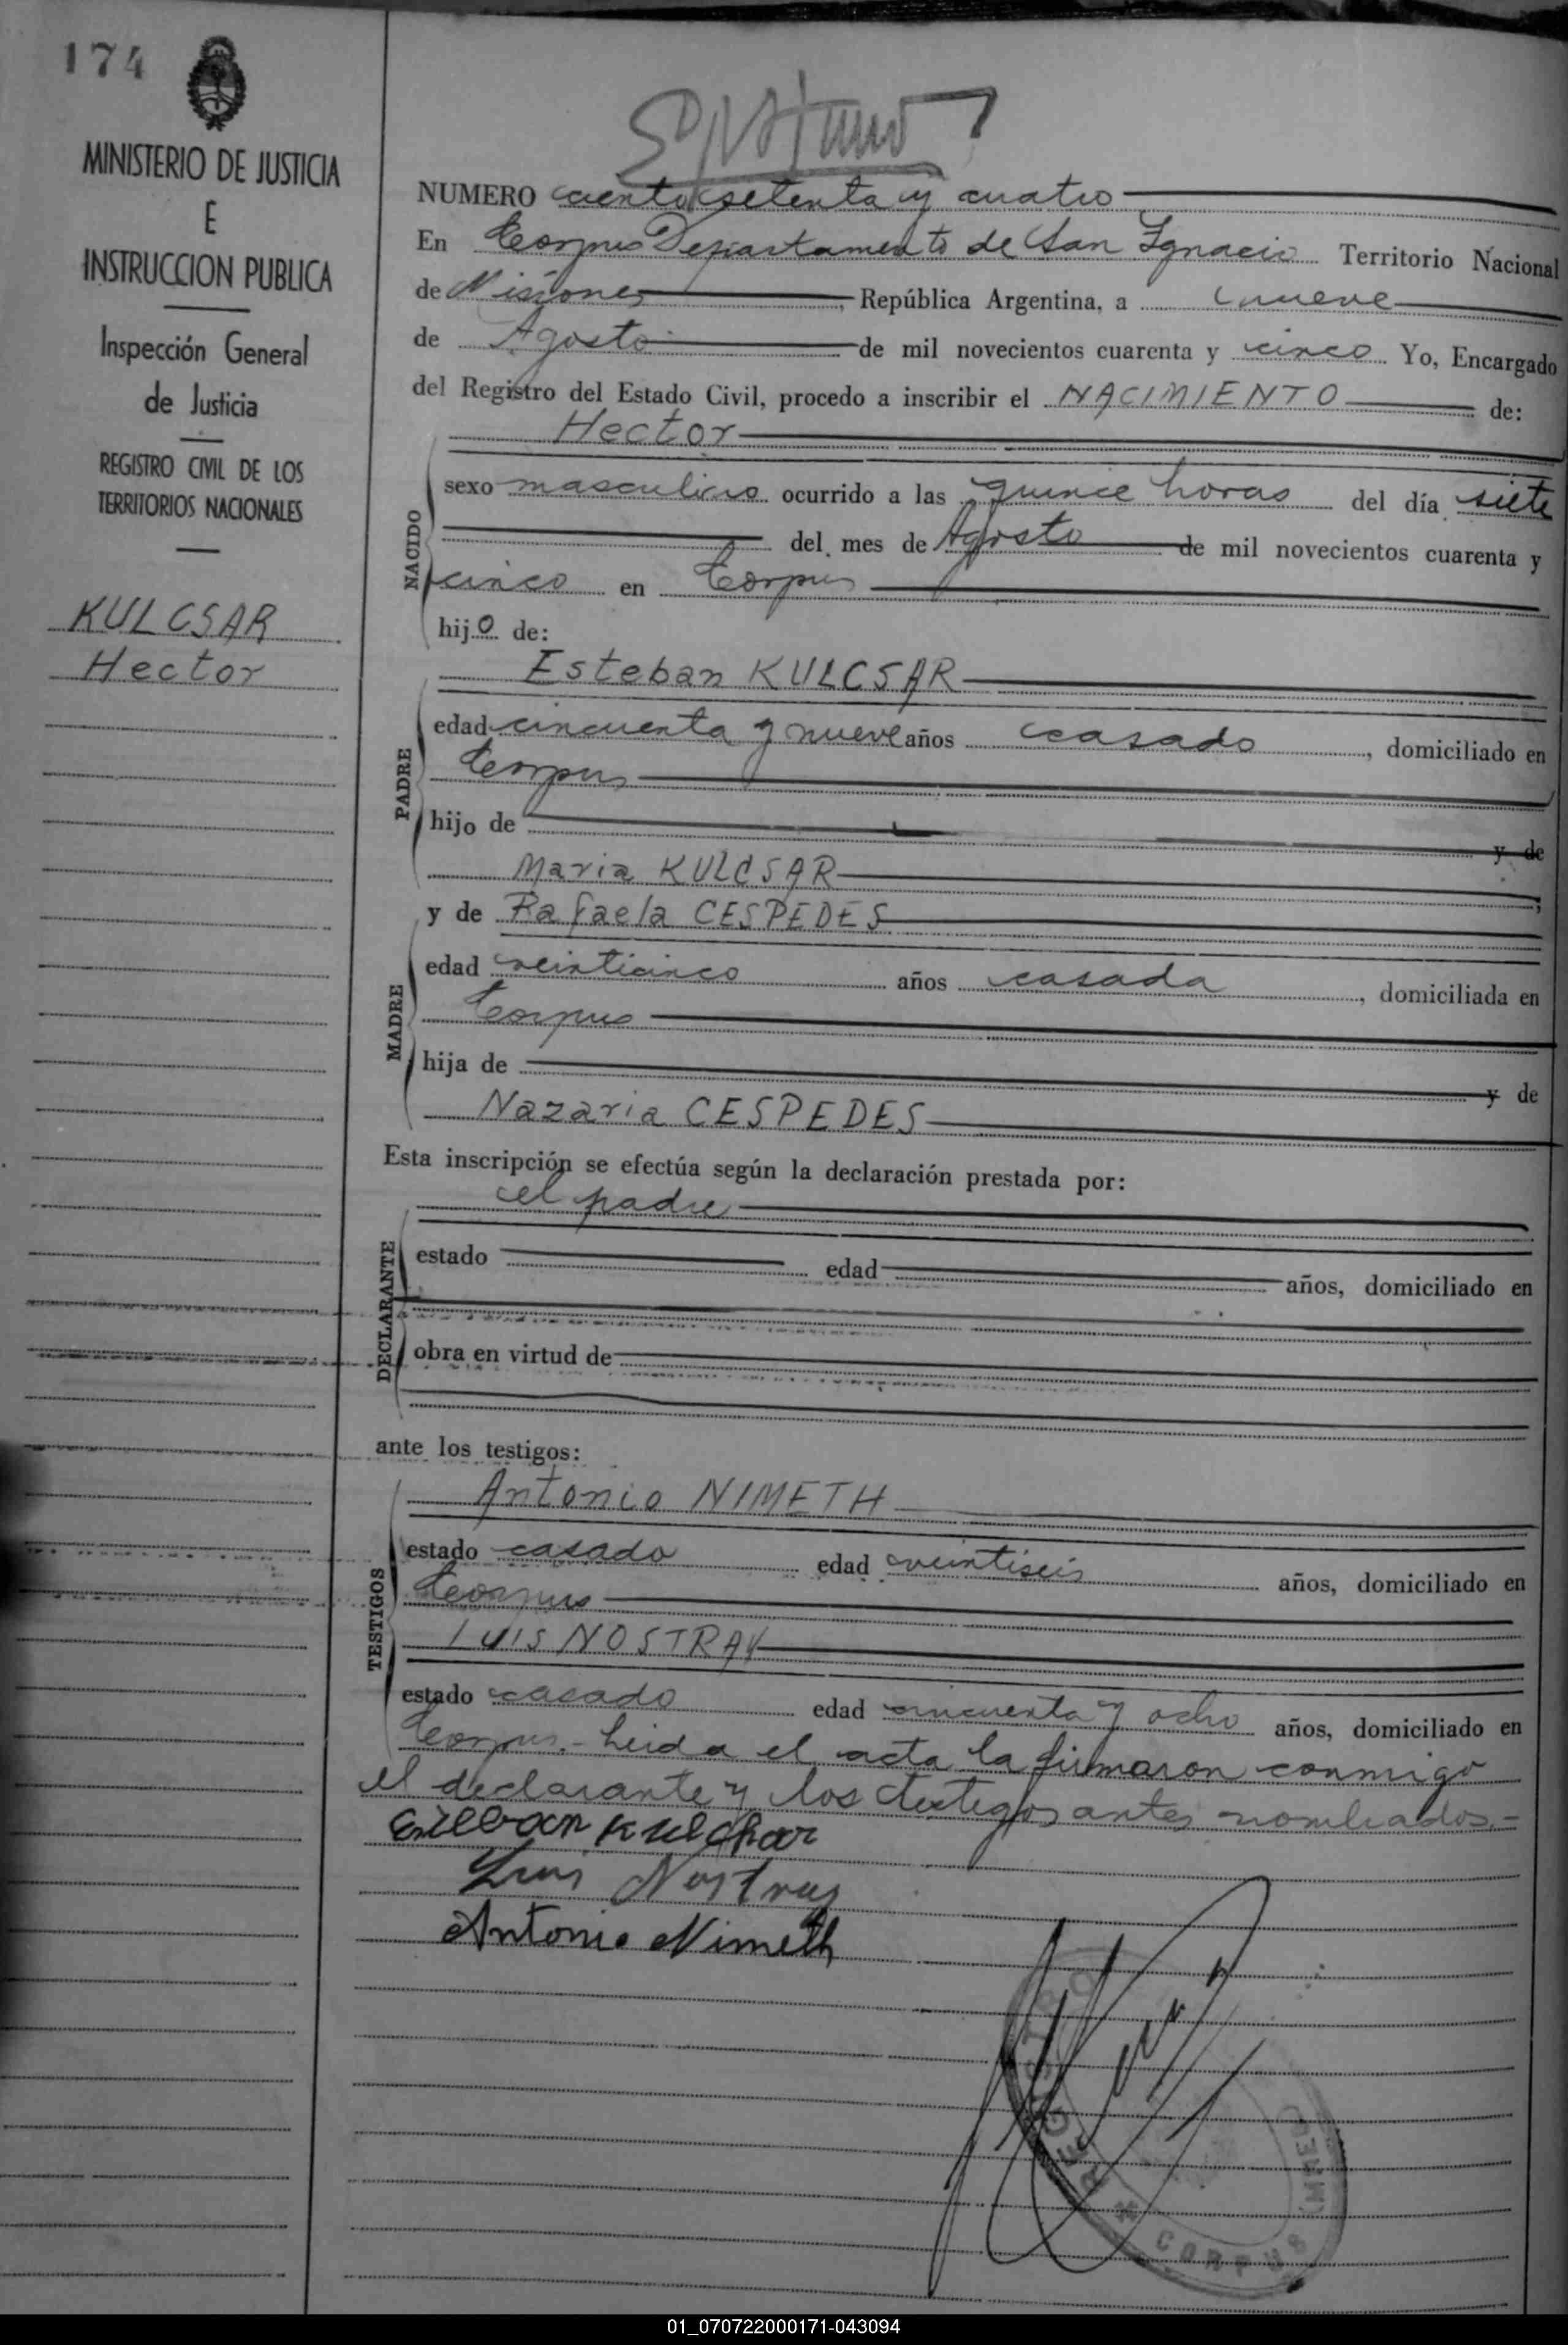 174
MINISTERIO DE JUSTICIA
E
INSTRUCCION PUBLICA
Inspección General
de Justicia
REGISTRO CIVIL DE LOS
TERRITORIOS NACIONALES
KULCSAR
Hector
NUMERO ciento setenta y cuatro
En Corpus Departamento de San Ignacio Territorio Nacional
de Misiones, República Argentina, a nueve
de Agosto de mil novecientos cuarenta y cinco Yo, Encargado
del Registro del Estado Civil, procedo a inscribir el NACIMIENTO de:
NACIDO
Hector
sexo masculino ocurrido a las quince horas del día siete
del mes de Agosto de mil novecientos cuarenta y
cinco en Corpus
hijo de:
PADRE
Esteban KULCSAR
edad cincuenta y nueve años casado, domiciliado en
Corpus
hijo de y de
Maria KULCSAR
y de Rafaela CESPEDES
MADRE
edad veinticinco años casada, domiciliada en
Corpus
hija de y de
Nazaria CESPEDES
Esta inscripción se efectúa según la declaración prestada por:
DECLARANTE
el padre
estado edad años, domiciliado en
obra en virtud de
ante los testigos:
TESTIGOS
Antonio NIMETH
estado casado edad veintiseis años, domiciliado en
Corpus
LUIS NOSTRAY
estado casado edad cincuenta y ocho años, domiciliado en
Corpus.- Leida el acta la firmaron conmigo
el declarante y los testigos antes nombrados.-
Esteban Kulchar
Luis Nostray
Antonio Nimeth
REGISTRO
CORPUS (MNES)
01_070722000171-043094